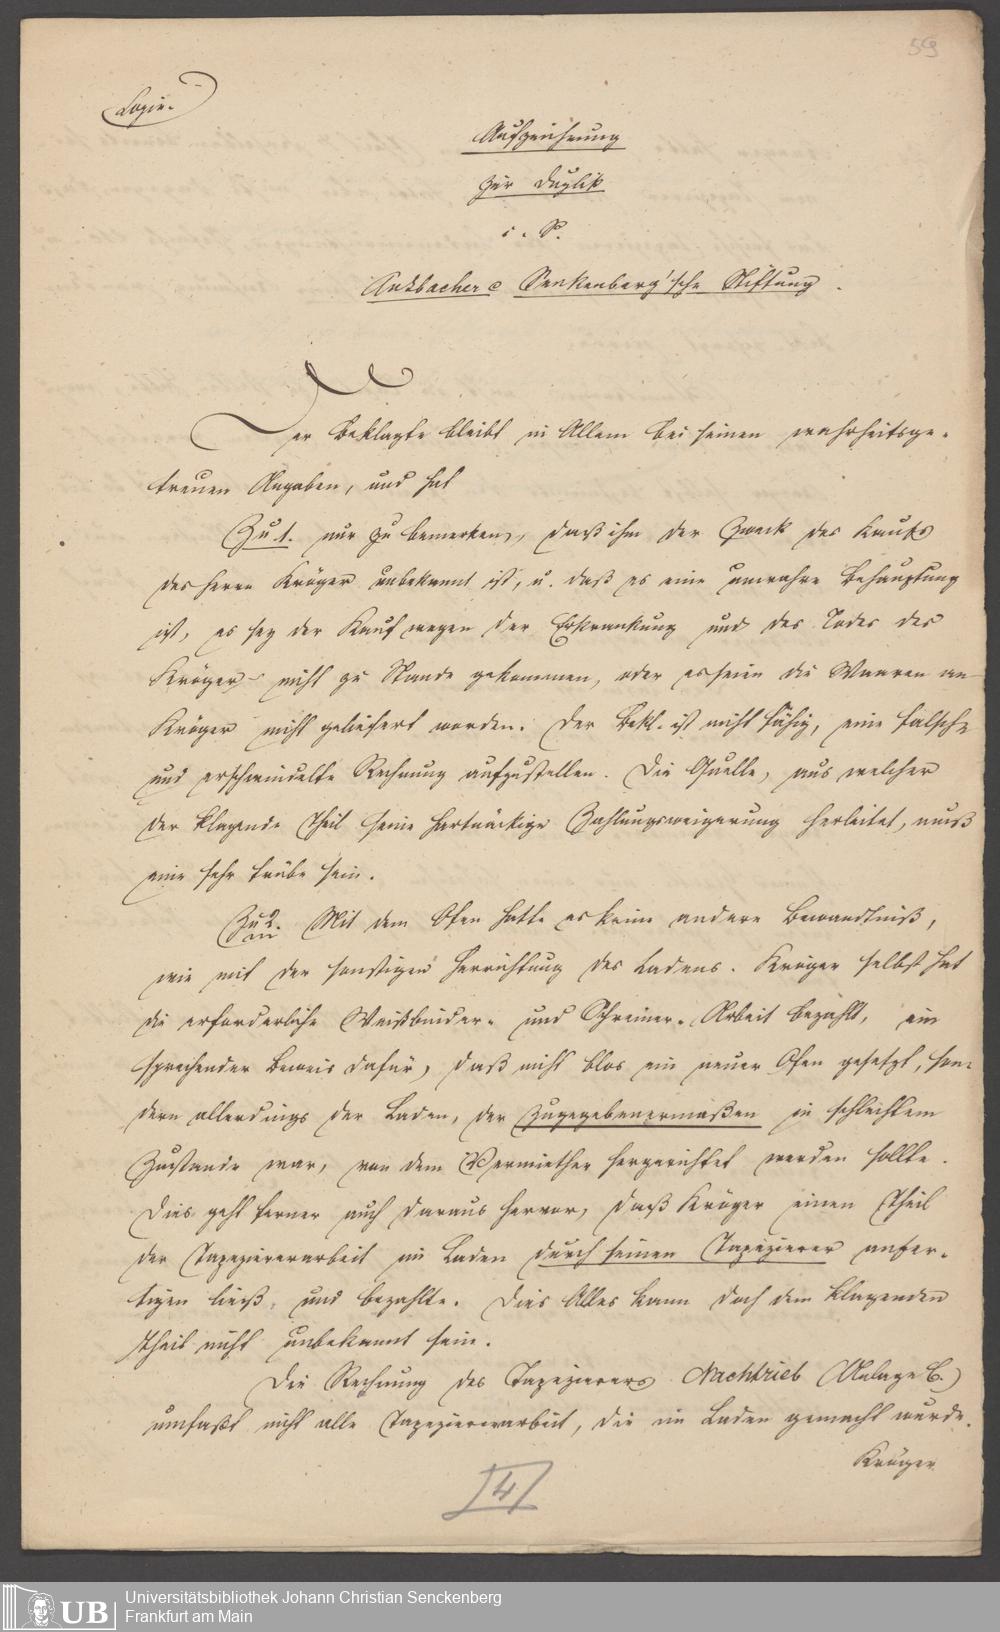 59
Copie.
Aufzeichnung
zur Duplik
i. S.
Ansbacher c Senkenberg'sche Stiftung.
Der Beklagte bleibt in Allem bei seinen wahrheitsge-
treuen Angaben, und hat
Zu 1. nur zu bemerken, daß ihm der Zweck des Kaufs
des Herrn Kröger unbekannt ist, u. daß es eine unwahre Behauptung
ist, es sey der Kauf wegen der Erkrankung und des Todes des
Kröger nicht zu Stande gekommen, oder es seien die Waaren an
Kröger nicht geliefert worden. Der Bekl. ist nicht fähig, eine falsche
und erschwindelte Rechnung aufzustellen. Die Quelle, aus welcher
der klagende Theil seine hartnäckige Zahlungsweigerung herleitet, muß
eine sehr trübe sein.
Zu 2. Mit dem Ofen hatte es keine andere Bewandtniß,
wie mit der sonstigen Herrichtung des Ladens. Kröger selbst hat
die erforderliche Weißbinder- und Schreiner-Arbeit bezahlt, ein
sprechender Beweis dafür, daß nicht blos ein neuer Ofen gesetzt, son-
dern allerdings der Laden, der zugegebenermaßen in schlechtem
Zustande war, von dem Vermiether hergerichtet werden sollte.
Dies geht ferner auch daraus hervor, daß Kröger einen Theil
der Tapeziererarbeit im Laden durch seinen Tapezierer anfer-
tigen ließ, und bezahlte. Dies Alles kann doch dem klagenden
Theil nicht unbekannt sein.
Die Rechnung des Tapezierers Nachtrieb (Anlage C.)
umfaßt nicht alle Tapeziererarbeit, die im Laden gemacht wurde.
Kröger
4
UB
Universitätsbibliothek Johann Christian Senckenberg
Frankfurt am Main